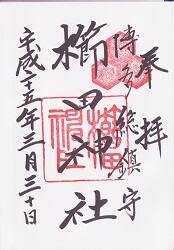 奉拝
博多総鎮守
櫛田神社
平成二十五年三月三十日